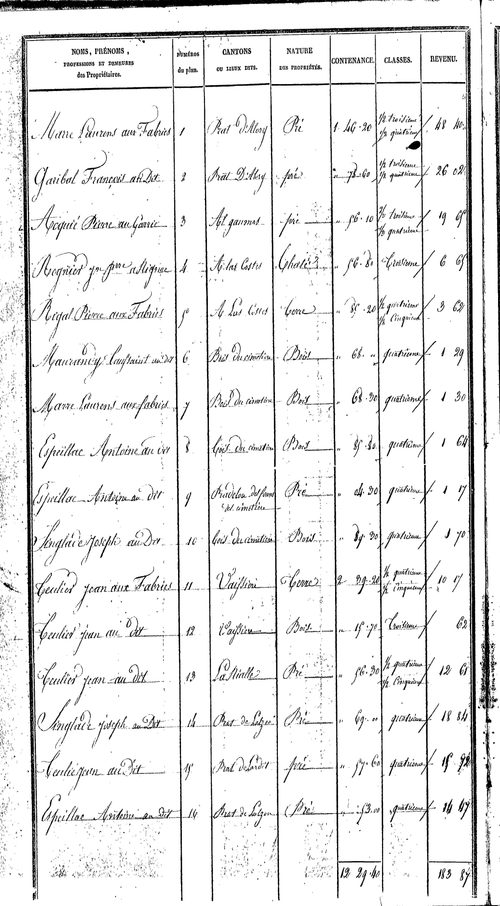 NOMS, PRÉNOMS, PROFESSIONS ET DEMEURES des Propriétaires. NUMÉROS du plan. CANTONS OU LIEUX DITS. NATURE DES PROPRIÉTÉS. CONTENANCE. CLASSES. REVENU.
Marre Laurens aux Fabriès 1 Prat d'Alory Pré 1 46 20 1/2 troisieme 1/2 quatrième 48 40
Garibal François au Dit 2 Prat D'Alory pré " 78 60 1/2 troisieme 1/2 quatrieme 26 02
Acquié Pierre au Garric 3 Al gaumas pré " 56 10 1/2 troisieme 1/2 quatrieme 19 65
Regnier jn pre 4 A las Costes " 56 80 Troisieme 6 65
Rigal Pierre aux Fabriès 5 A Las Costes Terre " 85 20 1/2 quatrieme 1/2 cinquieme 3 62
au dit 6 Bois du cimetière Bois " 68 " quatrième 1 29
Marre Laurens aux fabriès 7 Bois du cimetière Bois " 68 30 quatrième 1 30
Espeillac Antoine au dit 8 Bois du cimetière Bois " 85 80 quatrième 1 64
Espeillac Antoine au dit 9 du cimetière Pré " 04 30 quatrième 1 17
Senglade Joseph au Dit 10 Bois du cimetière Bois " 89 30 quatrième 1 70
Teulier Jean aux Fabriès 11 Vaissière Terre 2 39 20 1/2 quatrième 1/2 cinquieme 10 17
Teulier jean au dit 12 Vaissière Bois " 15 70 Troisieme 62
Teulier jean au dit 13 Pré " 56 30 1/2 quatrieme 1/2 cinquieme 12 61
Senglade Joseph au Dit 14 Prat de Pré " 69 " quatrieme 18 84
Teulié jean au Dit 15 Prat de pré " 57 60 quatrieme 15 72
Espeillac Antoine au dit 16 Prat de Pré " 53 00 quatrieme 14 47
12 29 40 183 87